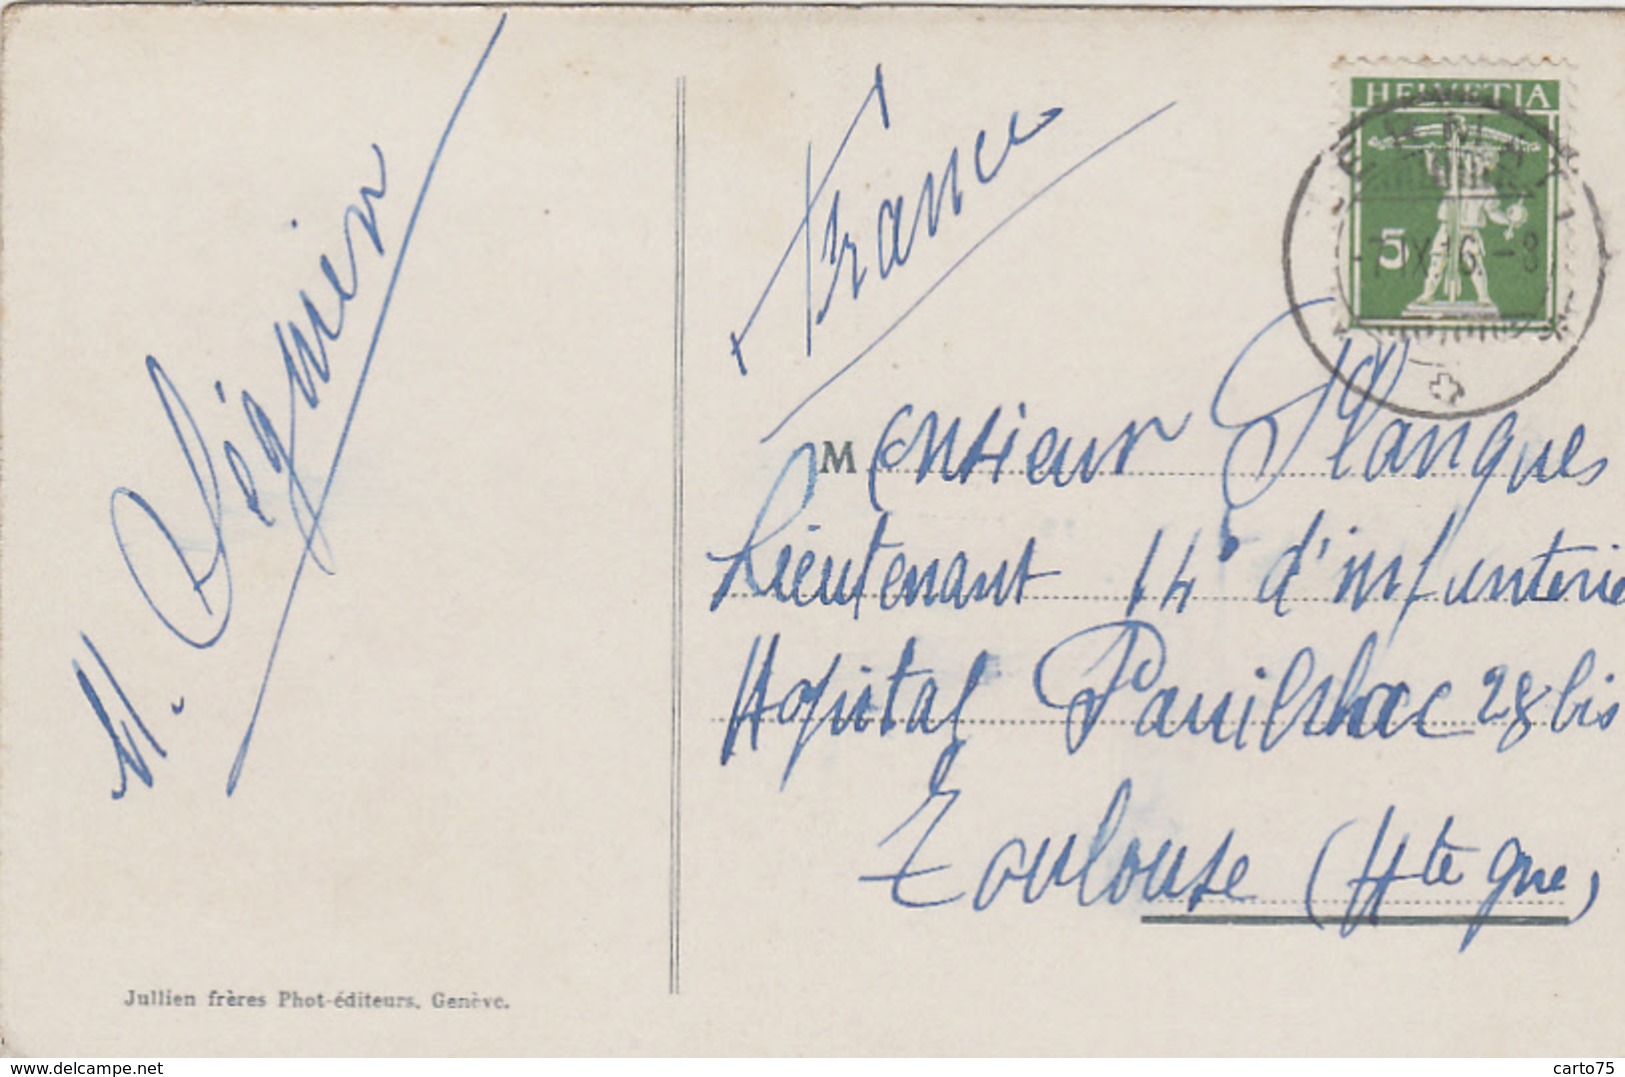 HELVETIA
5
-7.IX.16.-8
France
Monsieur Planques
Lieutenant 14e d'infanterie
Hopital 28 bis
Toulouse (Hte Gne)
M.
Jullien frères Phot-éditeurs, Genève.
delcampe.net
carto75